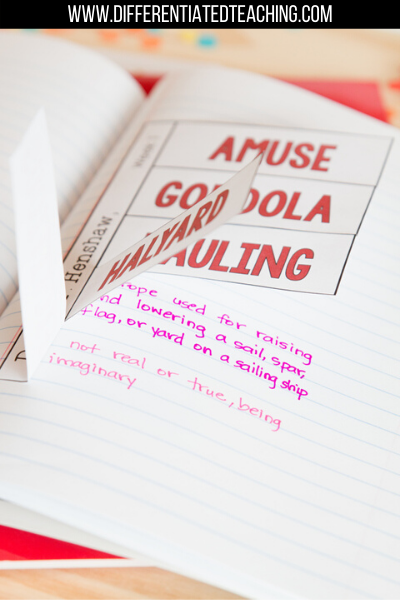 WWW.DIFFERENTIATEDTEACHING.COM
AMUSE
HALYARD
AULING
Henshaw,
rope used for raising
and lowering a sail, spar,
flag, or yard on a sailing ship
not real or true, being
imaginary